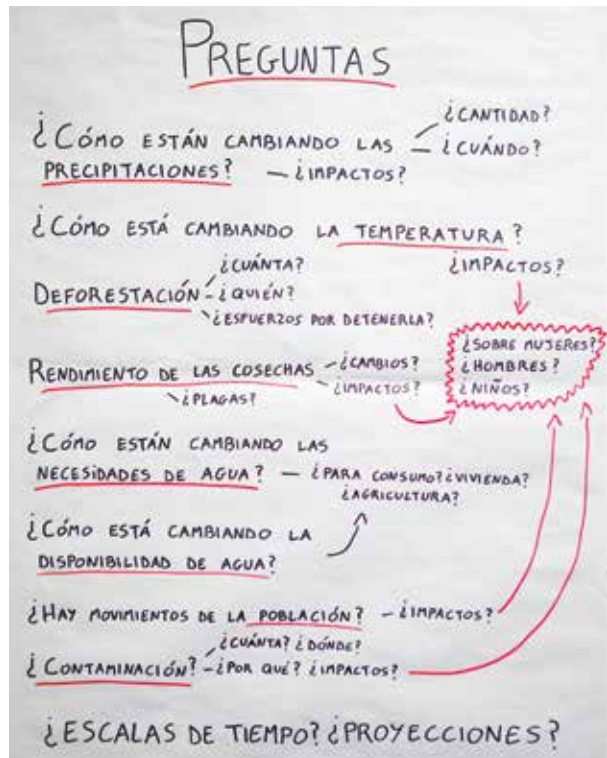 PREGUNTAS
¿CANTIDAD?
¿CÓMO ESTÁN CAMBIANDO LAS — ¿CUÁNDO?
PRECIPITACIONES? — ¿IMPACTOS?
¿CÓMO ESTÁ CAMBIANDO LA TEMPERATURA?
¿CUÁNTA? ¿IMPACTOS?
DEFORESTACIÓN - ¿QUIÉN?
¿ESFUERZOS POR DETENERLA?
¿SOBRE MUJERES?
¿HOMBRES?
¿NIÑOS?
RENDIMIENTO DE LAS COSECHAS - ¿CAMBIOS?
¿PLAGAS? ¿IMPACTOS?
¿CÓMO ESTÁN CAMBIANDO LAS
NECESIDADES DE AGUA? — ¿PARA CONSUMO? ¿VIVIENDA?
¿AGRICULTURA?
¿CÓMO ESTÁ CAMBIANDO LA
DISPONIBILIDAD DE AGUA?
¿HAY MOVIMIENTOS DE LA POBLACIÓN? - ¿IMPACTOS?
¿CUÁNTA? ¿DÓNDE?
¿CONTAMINACIÓN? - ¿POR QUÉ? ¿IMPACTOS?
¿ESCALAS DE TIEMPO? ¿PROYECCIONES?